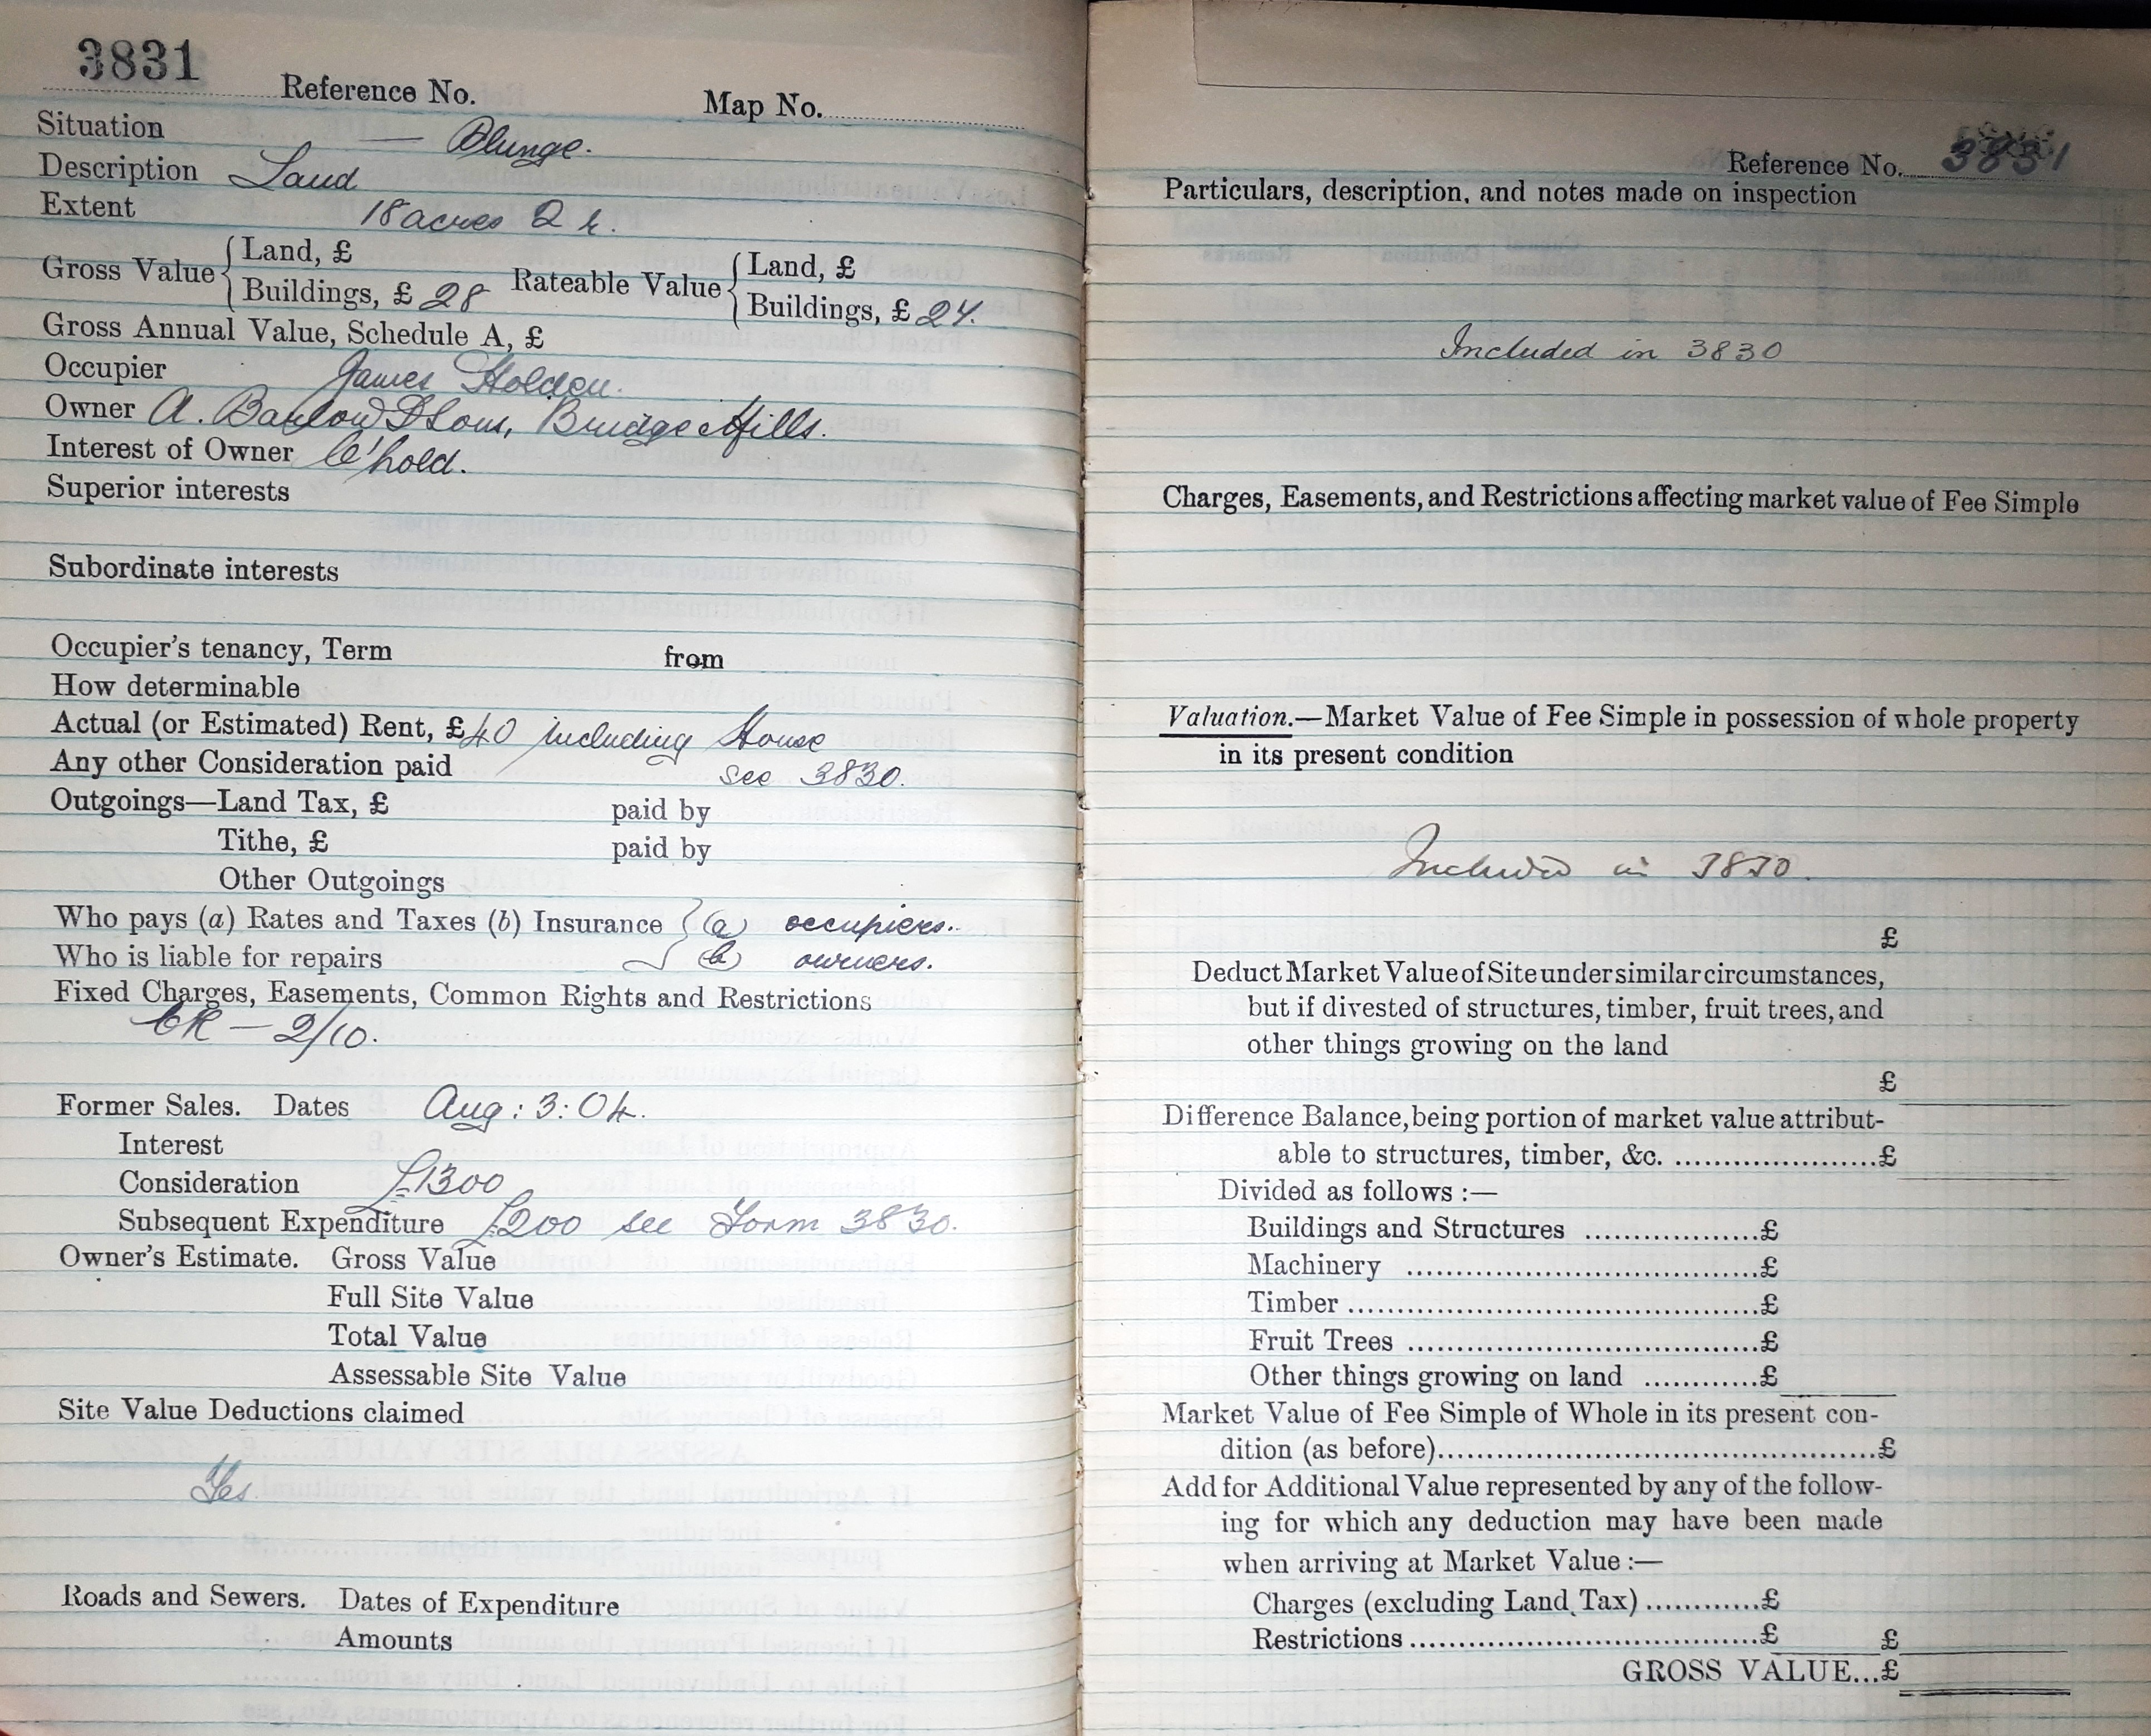 3831
Reference No. Map No.
Situation — Plunge.
Description Land
Extent 18 acres 2 r.
Gross Value { Land, £
Buildings, £ 28
Rateable Value { Land, £
Buildings, £ 24.
Gross Annual Value, Schedule A, £
Occupier James Holden.
Owner A. Barlow & Sons, Bridge Mills.
Interest of Owner C'hold.
Superior interests
Subordinate interests
Occupier's tenancy, Term from
How determinable
Actual (or Estimated) Rent, £40 including House
Any other Consideration paid see 3830.
Outgoings—Land Tax, £ paid by
Tithe, £ paid by
Other Outgoings
Who pays (a) Rates and Taxes (b) Insurance } (a) occupiers.
Who is liable for repairs (b) owners.
Fixed Charges, Easements, Common Rights and Restrictions
CR — 2/10.
Former Sales. Dates Aug: 3: 04.
Interest
Consideration £1300
Subsequent Expenditure £200 see Form 3830.
Owner's Estimate. Gross Value
Full Site Value
Total Value
Assessable Site Value
Site Value Deductions claimed
Yes.
Roads and Sewers. Dates of Expenditure
Amounts
Reference No. 3831
Particulars, description, and notes made on inspection
Included in 3830
Charges, Easements, and Restrictions affecting market value of Fee Simple
Valuation.—Market Value of Fee Simple in possession of whole property
in its present condition
Included in 3830.
£
Deduct Market Value of Site under similar circumstances,
but if divested of structures, timber, fruit trees, and
other things growing on the land
£
Difference Balance, being portion of market value attribut-
able to structures, timber, &c. ......................£
Divided as follows :—
Buildings and Structures ...................£
Machinery ......................................£
Timber .............................................£
Fruit Trees ......................................£
Other things growing on land ............£
Market Value of Fee Simple of Whole in its present con-
dition (as before)................................................£
Add for Additional Value represented by any of the follow-
ing for which any deduction may have been made
when arriving at Market Value :—
Charges (excluding Land Tax) ............£
Restrictions ......................................£ £
GROSS VALUE...£